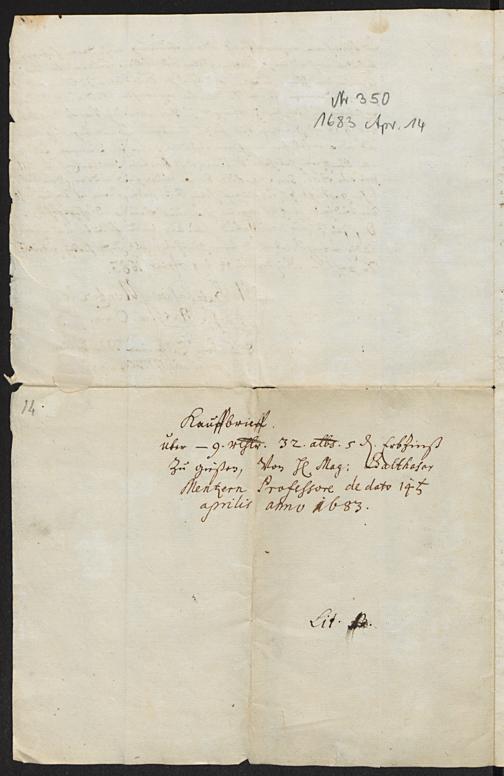 Nr. 350
1683 Apr. 14
14.
Kauffbrieff.
über – 9. Rthlr. 32. albs. 5 ₰ Erbzinß
Zu gießen, Von H. Mag: Balthasar
Mentzern Professore de dato 14t
aprilis anno 1683.
Lit.